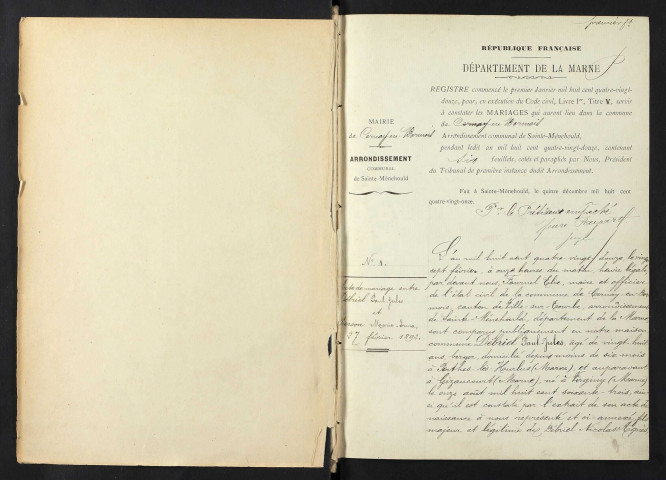 premier ft
RÉPUBLIQUE FRANÇAISE
DÉPARTEMENT DE LA MARNE
REGISTRE commencé le premier Janvier mil huit cent quatre-vingt-
douze, pour, en exécution du Code civil, Livre Ier, Titre V, servir
à constater les MARIAGES qui auront lieu dans la commune
de Cernay en Dormois
Arrondissement communal de Sainte-Ménehould,
pendant ledit an mil huit cent quatre-vingt-douze, contenant
six feuillets, cotés et paraphés par Nous, Président
du Tribunal de première instance dudit Arrondissement.
Fait à Sainte-Ménehould, le quinze décembre mil huit cent
quatre-vingt-onze.
Pr le Président empêché
juge
MAIRIE
de Cernay en Dormois
ARRONDISSEMENT
COMMUNAL
de Sainte-Ménehould
N° 1.
Acte de mariage entre
Débriel Paul Jules
et
27 février 1892.
L'an mil huit cent quatre-vingt-douze, le vingt
sept février, à onze heures du matin, heure légale,
par devant nous, Fournel Elie, maire et officier
de l'état civil de la commune de Cernay-en-Dor
mois, canton de Ville-sur-Tourbe, arrondissement
de Sainte-Ménehould, département de la Marne,
sont comparus publiquement en notre maison
commune Débriel Paul Jules, âgé de vingt-huit
ans, berger, domicilié depuis moins de six mois
à Perthes-les-Hurlus (Marne), et auparavant
à Gizaucourt (Marne), né à (Marne)
le onze août mil huit cent soixante-trois, ain
si qu'il est constaté par l'extrait de son acte de
naissance à nous représenté et ci-annexé, fils
majeur et légitime de Débriel Nicolas